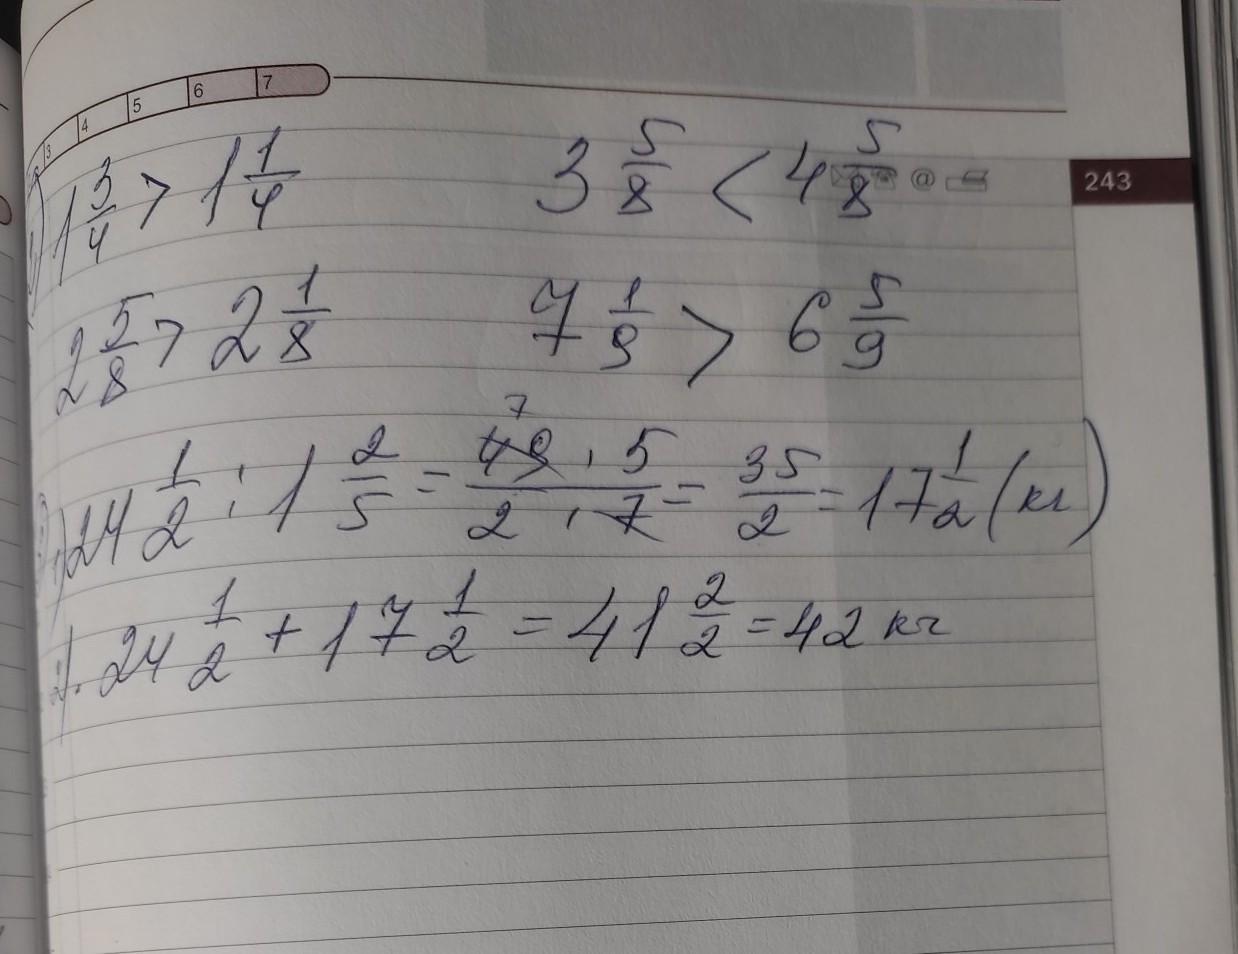 3 4 5 6 7
1) 1 3/4 > 1 1/4    3 5/8 < 4 5/8 @ 243
2 5/8 > 2 1/8    7 1/9 > 6 5/9
1) 24 1/2 : 1 2/5 = 49 · 5 / 2 · 7 = 35/2 = 17 1/2 (кг)
7
2). 24 1/2 + 17 1/2 = 41 2/2 = 42 кг